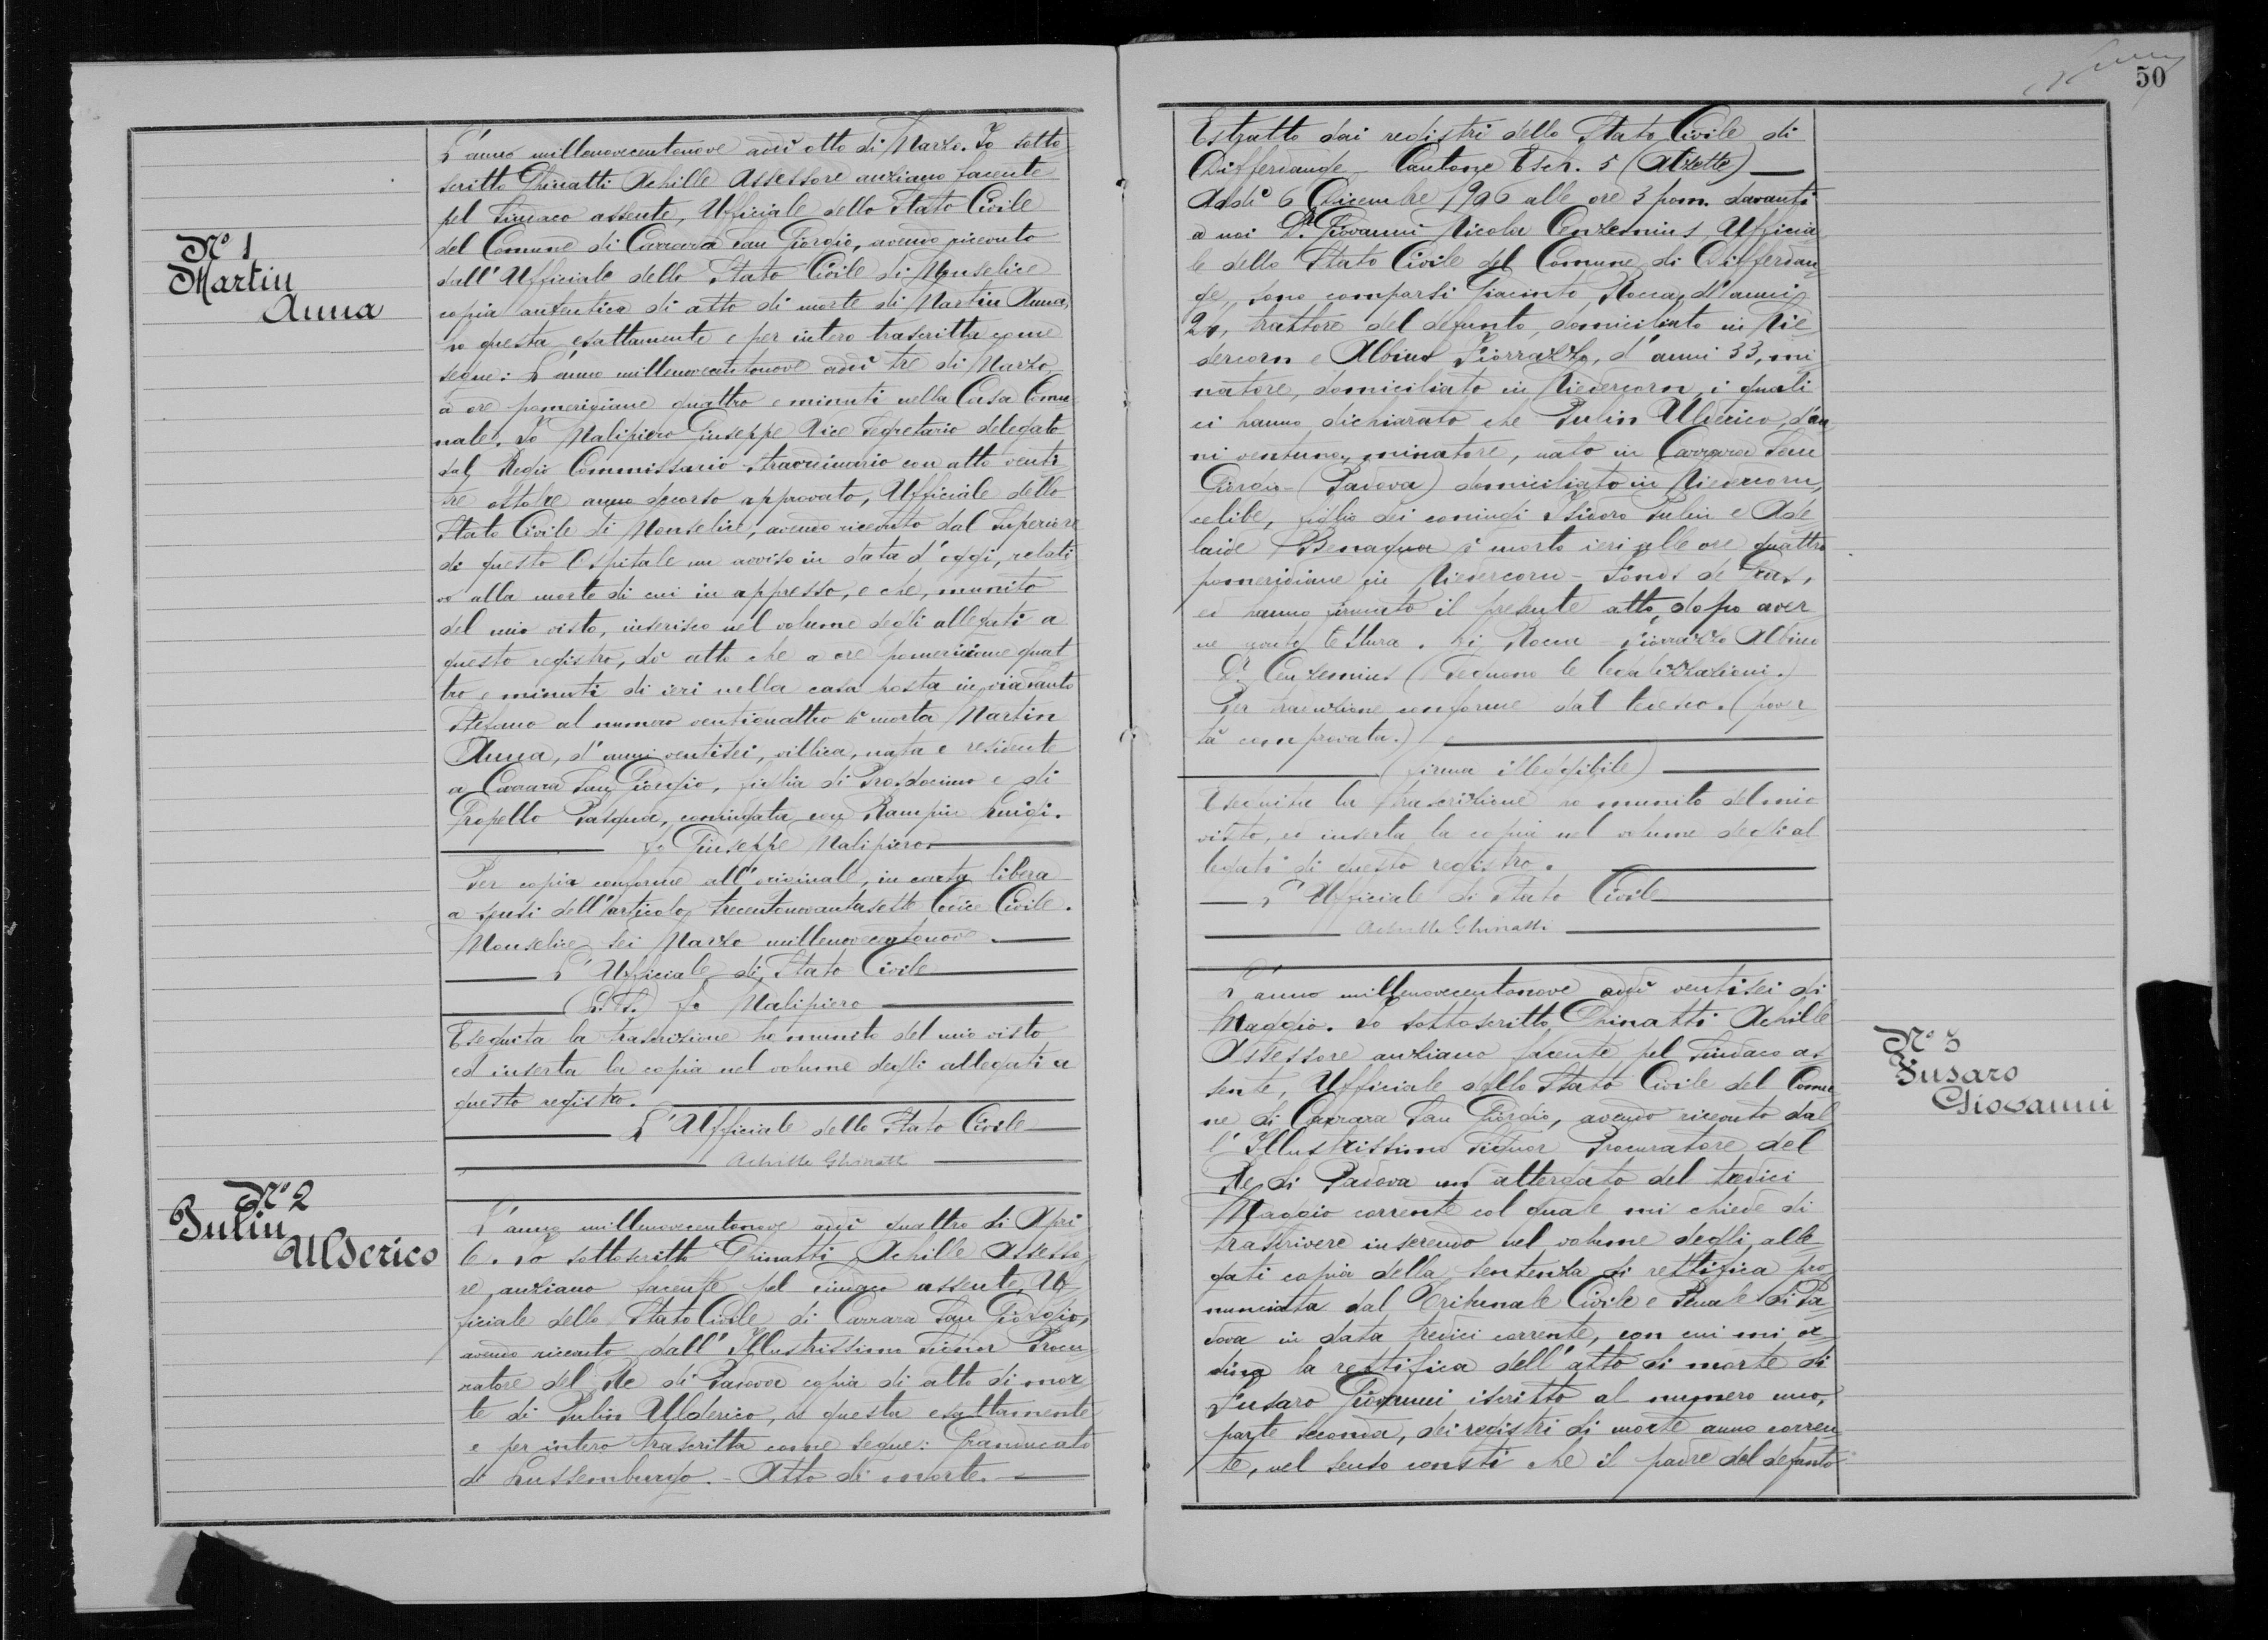 50
N° 1
Martin
Anna
L'anno millenovecentonove addì otto di Marzo. Io sotto
scritto Ghinatti Achille Assessore anziano facente
pel Sindaco assente, Ufficiale dello Stato Civile
del Comune di Carrara San Giorgio, avendo ricevuto
dall'Ufficiale dello Stato Civile di Monselice
copia autentica di atto di morte di Martin Anna,
ho questa esattamente e per intero trascritta come
segue: L'anno millenovecentonove addì tre di Marzo,
a ore pomeridiane quattro e minuti nella Casa Comu
nale. Io Malipiero Giuseppe Vice Segretario delegato
dal Regio Commissario straordinario con atto venti
tre ottobre anno decorso approvato, Ufficiale dello
Stato Civile di Monselice, avendo ricevuto dal Superiore
di questo Ospitale un avviso in data d'oggi, relati
vo alla morte di cui in appresso, e che, munito
del mio visto, inserisco nel volume degli allegati a
questo registro, dò atto che a ore pomeridiane quat
tro e minuti di ieri nella casa posta in via Santo
Stefano al numero ventiquattro è morta Martin
Anna, d'anni ventisei, villica, nata e residente
a Carrara San Giorgio, figlia di Prosdocimo e di
Gropello Pasqua, coniugata con Rampin Luigi.
fo Giuseppe Malipiero.
Per copia conforme all'originale, in carta libera
a sensi dell'articolo trecentonovantasette Codice Civile.
Monselice, sei Marzo millenovecentonove.
L'Ufficiale di Stato Civile
(L.S.) fo Malipiero
Eseguita la trascrizione ho munito del mio visto
ed inserta la copia nel volume degli allegati a
questo registro.
L'Ufficiale dello Stato Civile
Achille Ghinatti
N° 2
Pulin
Ulderico
L'anno millenovecentonove addì quattro di Apri
le. Io sottoscritto Ghinatti Achille Assesso
re anziano facente pel Sindaco assente, Uf
ficiale dello Stato Civile di Carrara San Giorgio,
avendo ricevuto dall'Illustrissimo Signor Procu
ratore del Re di Padova copia di atto di mor
te di Pulin Ulderico, ho questa esattamente
e per intero trascritta come segue: Granducato
di Lussemburgo. - Atto di morte.
Estratto dai registri dello Stato Civile di
Differdange - Cantone Esch. 5 (Alzette)
Addì 6 Dicembre 1906 alle ore 3 pom. davanti
a noi Dr. Giovanni Nicola Conzemius, Ufficia
le dello Stato Civile del Comune di Differdan
ge, sono comparsi Giacinto Rocca, d'anni
24, trattore del defunto, domiciliato in Nie
dercorn e Albino Fiorrazzo, d'anni 33, mi
natore, domiciliato in Niedercorn, i quali
ci hanno dichiarato che Pulin Ulderico, d'an
ni ventuno, minatore, nato in Carrara San
Giorgio - (Padova) domiciliato in Niedercorn,
celibe, figlio dei coniugi Isidoro Pulin e Ade
laide Benaqua è morto ieri alle ore quattro
pomeridiane in Niedercorn - Fonds de Gras,
ed hanno firmato il presente atto, dopo aver
ne lettura. Rocca - Fiorrazzo Albino
Dr. Conzemius (Seguono le legalizzazioni.)
Per traduzione conforme dal tedesco. (pover
tà comprovata.)
(firma illeggibile)
Eseguita la trascrizione ho munito del mio
visto, ed inserta la copia nel volume degli al
legati di questo registro.
L'Ufficiale di Stato Civile
Achille Ghinatti
N° 3
Fusaro
Giovanni
L'anno millenovecentonove addì ventisei di
Maggio. Io sottoscritto Ghinatti Achille
Assessore anziano facente pel Sindaco as
sente, Ufficiale dello Stato Civile del Comu
ne di Carrara San Giorgio, avendo ricevuto dal
l'Illustrissimo Signor Procuratore del
Re di Padova un attergato del tredici
Maggio corrente col quale mi chiede di
trascrivere inserendo nel volume degli alle
gati copia della sentenza di rettifica pro
nunciata dal Tribunale Civile e Penale di Pa
dova in data tredici corrente, con cui mi or
dina la rettifica dell'atto di morte di
Fusaro Giovanni iscritto al numero uno,
parte seconda, dei registri di morte anno corren
te, nel senso consti che il padre del defunto